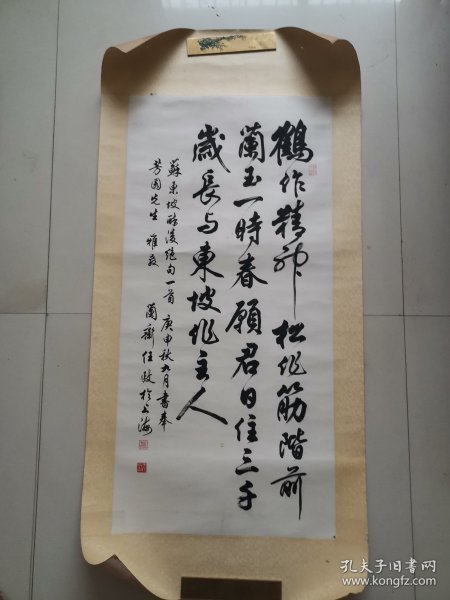 鶴作精神松作筋階前
蘭玉一時春願君且住三千
歲長与東坡作主人
蘇東坡
絕句一首 庚申秋九月書奉
芳園先生 雅教 蘭齋任政於上海
孔夫子旧书网
www.kongfz.com